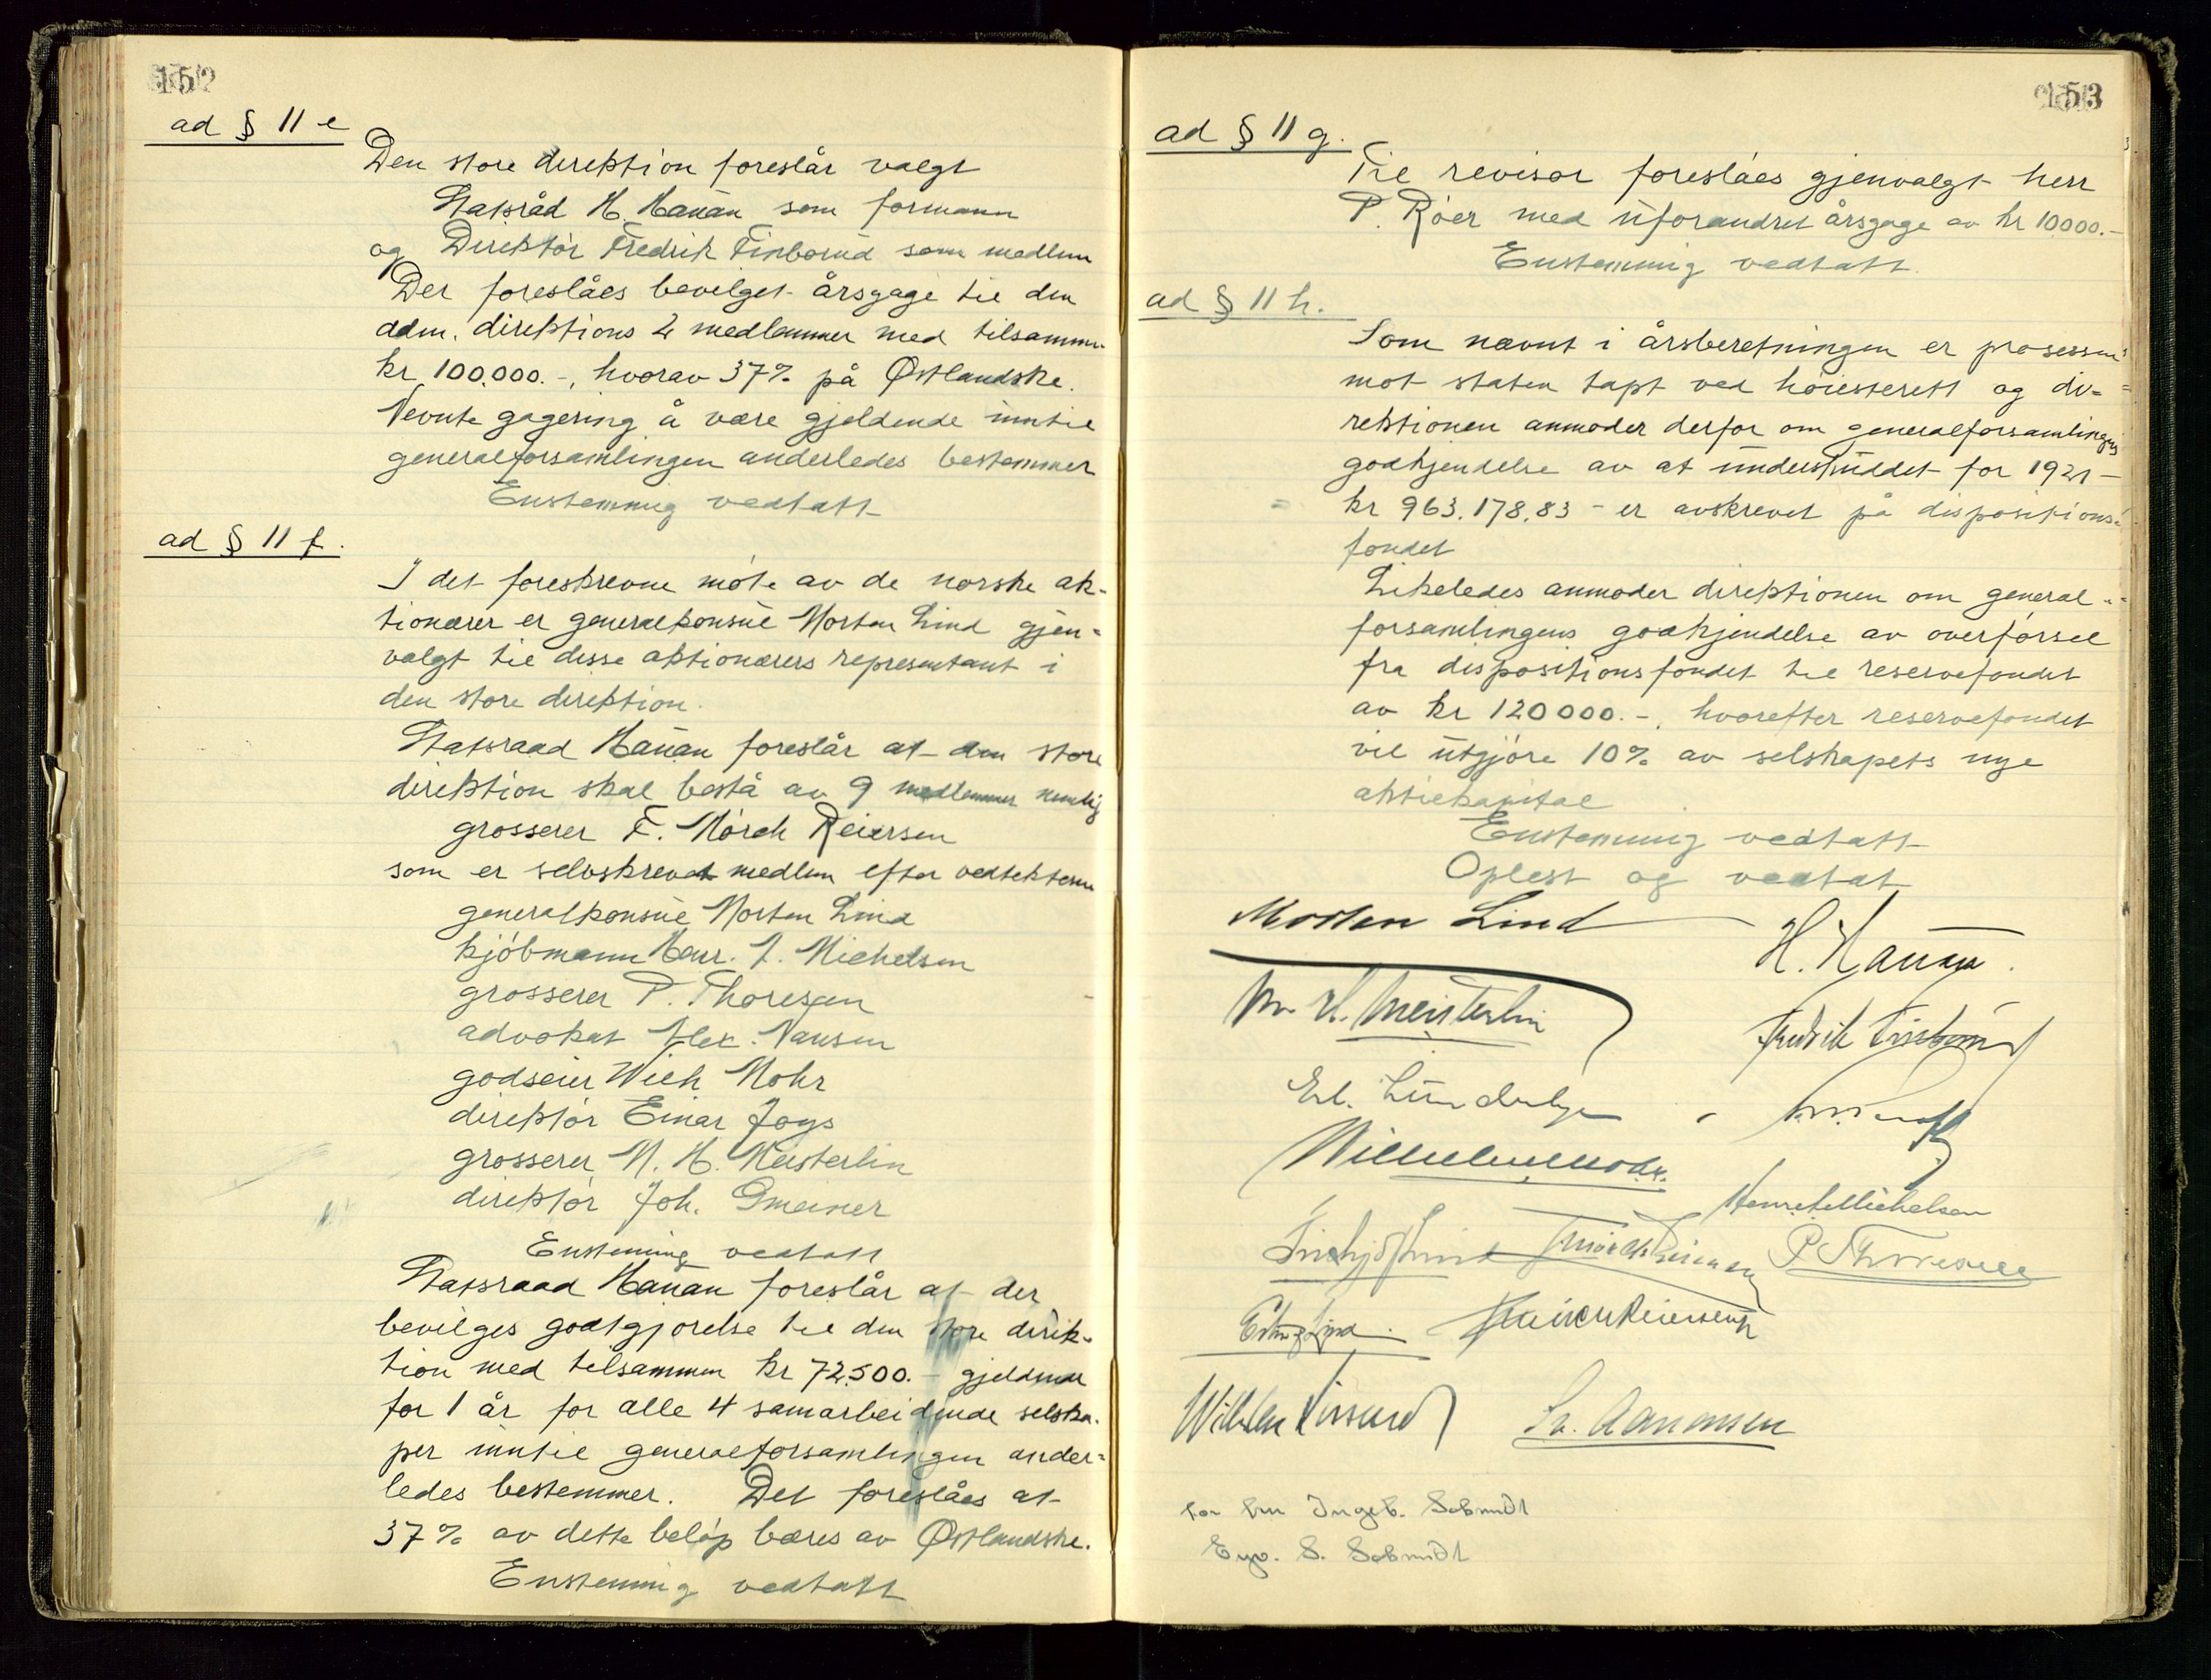 152
ad § 11 e
Den store direktion foreslår valgt
Statsråd H. Hauan som formann
og Direktør Fredrik Finborud som medlem
Der foreslåes bevilget årsgage til den
adm. direktions 2 medlemmer med tilsammen
kr 100.000.-, hvorav 37% på Østlandske.
Nevnte gagering å være gjeldende inntil
generalforsamlingen anderledes bestemmer
Enstemmig vedtatt
ad § 11 f.
I det foreskrevne møte av de norske ak-
tionærer er generalkonsul Morten Lind gjen-
valgt til disse aktionærers representant i
den store direktion.
Statsraad Hauan foreslår at den store
direktion skal bestå av 9 medlemmer nemlig
grosserer F. Mørch Reiersen
som er selvskrevet medlem efter vedtektene
generalkonsul Morten Lind
kjøbmann Henr. J. Michelsen
grosserer P. Thoresen
advokat Alex. Nansen
godseier Wilh Mohr
direktør Einar Joys
grosserer M. H. Meisterlin
direktør Joh. Gmeiner
Enstemmig vedtatt
Statsraad Hauan foreslår at der
bevilges godtgjørelse til den store direk-
tion med tilsammen kr 72.500.- gjeldende
for 1 år for alle 4 samarbeidende selska-
per inntil generalforsamlingen ander-
ledes bestemmer. Det foreslåes at
37% av dette beløp bæres av Østlandske.
Enstemmig vedtatt
153
ad § 11 g.
Til revisor foreslåes gjenvalgt herr
P. Røer med uforandret årsgage av kr 10000.-
Enstemmig vedtatt.
ad § 11 h.
Som nævnt i årsberetningen er prosessen
mot staten tapt ved høiesterett og di-
rektionen anmoder derfor om generalforsamlingens
godkjendelse av at underskuddet for 1921 -
kr 963.178.83 - er avskrevet på dispositions-
fondet
Likeledes anmoder direktionen om general-
forsamlingens godkjendelse av overførsel
fra dispositionsfondet til reservefondet
av kr 120000.-, hvorefter reservefondet
vil utgjøre 10% av selskapets nye
aktiekapital
Enstemmig vedtatt
Oplest og vedtat
Morten Lind
H. Hauan.
M. H. Meisterlin
Fredrik Finborud
Wilhelm Mohr.
Henr. J. Michelsen
Fridtjof Lind
F Mørch Reiersen
P Thoresen
Erling Lind.
Reiersen
Aanonsen
for fru Ingeb. Schmidt
Eyv. S. Schmidt